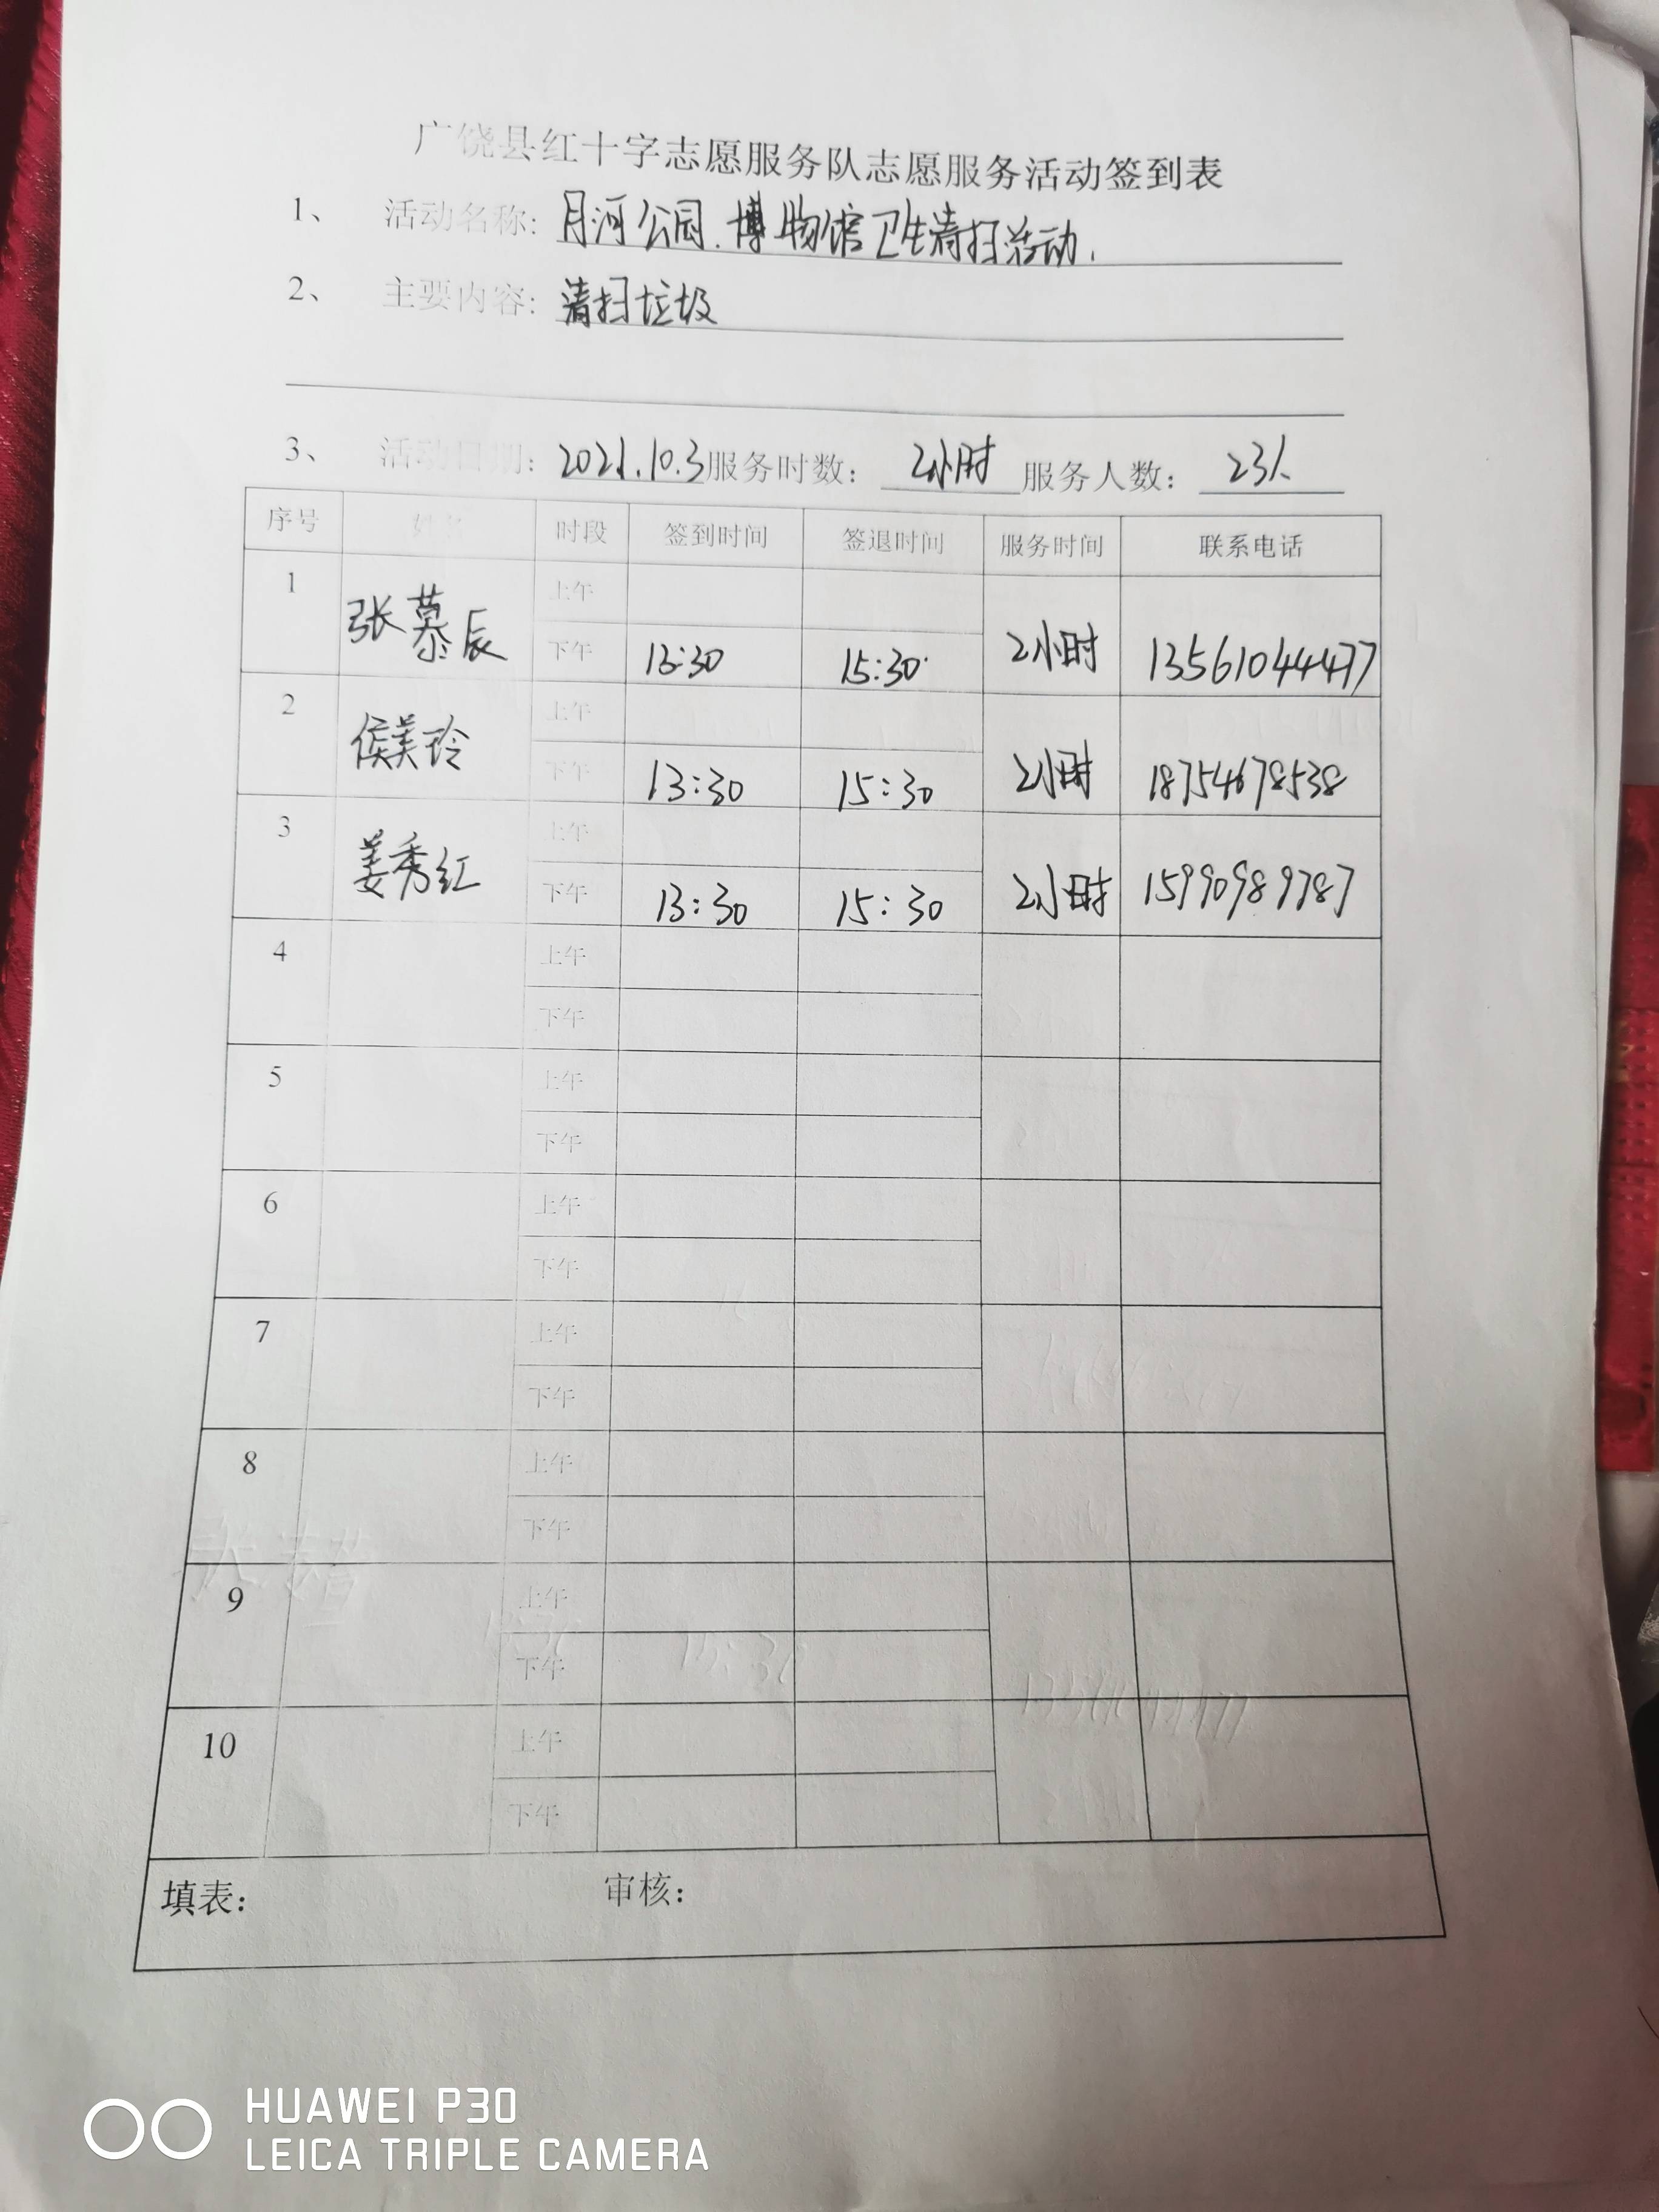 广饶县红十字志愿服务队志愿服务活动签到表
1、 活动名称: 月河公园.博物馆卫生清扫活动.
2、 主要内容: 清扫垃圾
3、 活动日期: 2021.10.3 服务时数: 2小时 服务人数: 23人
序号 姓名 时段 签到时间 签退时间 服务时间 联系电话
1 张慕辰 上午
下午 13:30 15:30 2小时 13561044477
2 侯美玲 上午
下午 13:30 15:30 2小时 18754678538
3 姜秀红 上午
下午 13:30 15:30 2小时 15990989787
4 上午
下午
5 上午
下午
6 上午
下午
7 上午
下午
8 上午
下午
9 上午
下午
10 上午
下午
填表: 审核:
HUAWEI P30
LEICA TRIPLE CAMERA